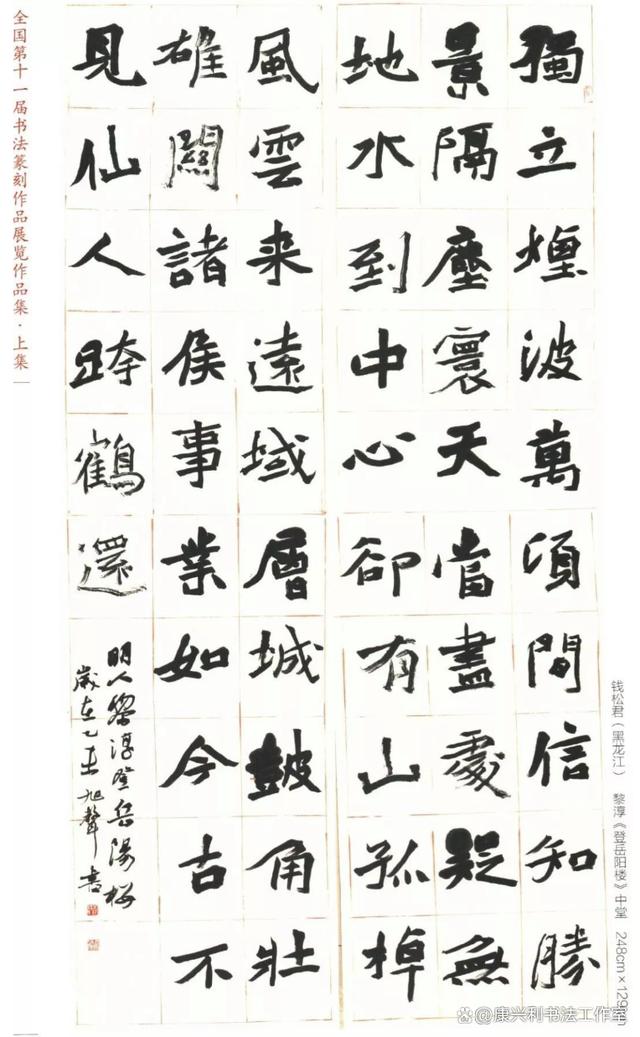 獨立煙波萬頃間信知勝
景隔塵寰天當盡處疑無
地水到中心卻有山孤棹
風雲来遠域層城鼓角壯
雄關諸侯事業如今古不
見仙人跨鶴還
明人黎淳登岳陽楼
歲在乙未旭聲書
全国第十一届书法篆刻作品展览作品集·上集
钱松君（黑龙江） 黎淳《登岳阳楼》中堂 248cm×129cm
@康兴利书法工作室